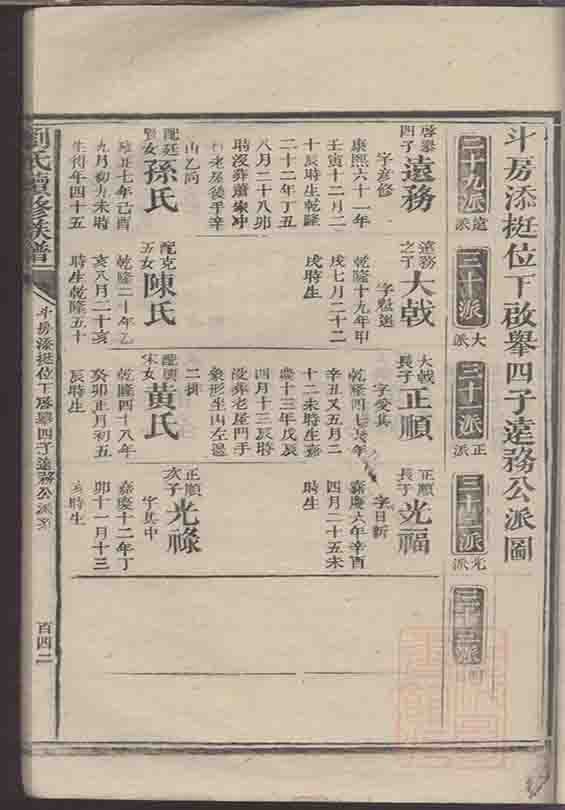 斗房添挺位下啟舉四子遠務公派圖
二十九派
遠派
三十派
大派
三十派
正派
三十派
光派
三十三派
啓舉
四子
遠務
字彥修
康熙六十一年
壬寅十二月二
十辰時生乾隆
二十二年丁丑
八月二十八卯
時沒葬蕭家冲
山乙向
配廷
賢女
孫氏
雍正七年己酉
九月初九未時
生得年四十五
遠務
之子
大戟
字魁選
乾隆十九年甲
戌七月二十二
戌時生
配克
五女
陳氏
乾隆二十年乙
亥八月二十亥
時生乾隆五十
大戟
長子
正順
字愛其
乾隆四十六年
辛丑又五月二
十二未時生嘉
慶十三年戊辰
四月十三辰時
沒葬老屋門手
象形坐山左邊
二排
宋女
黃氏
乾隆四十八年
癸卯正月初五
辰時生
正順
長子
光福
字日新
嘉慶六年辛酉
四月二十五未
時生
正順
次子
光祿
字其中
嘉慶十二年丁
卯十一月十三
時生
劉氏續修族譜
斗房添挺位下啓舉四子遠務公派
百四二